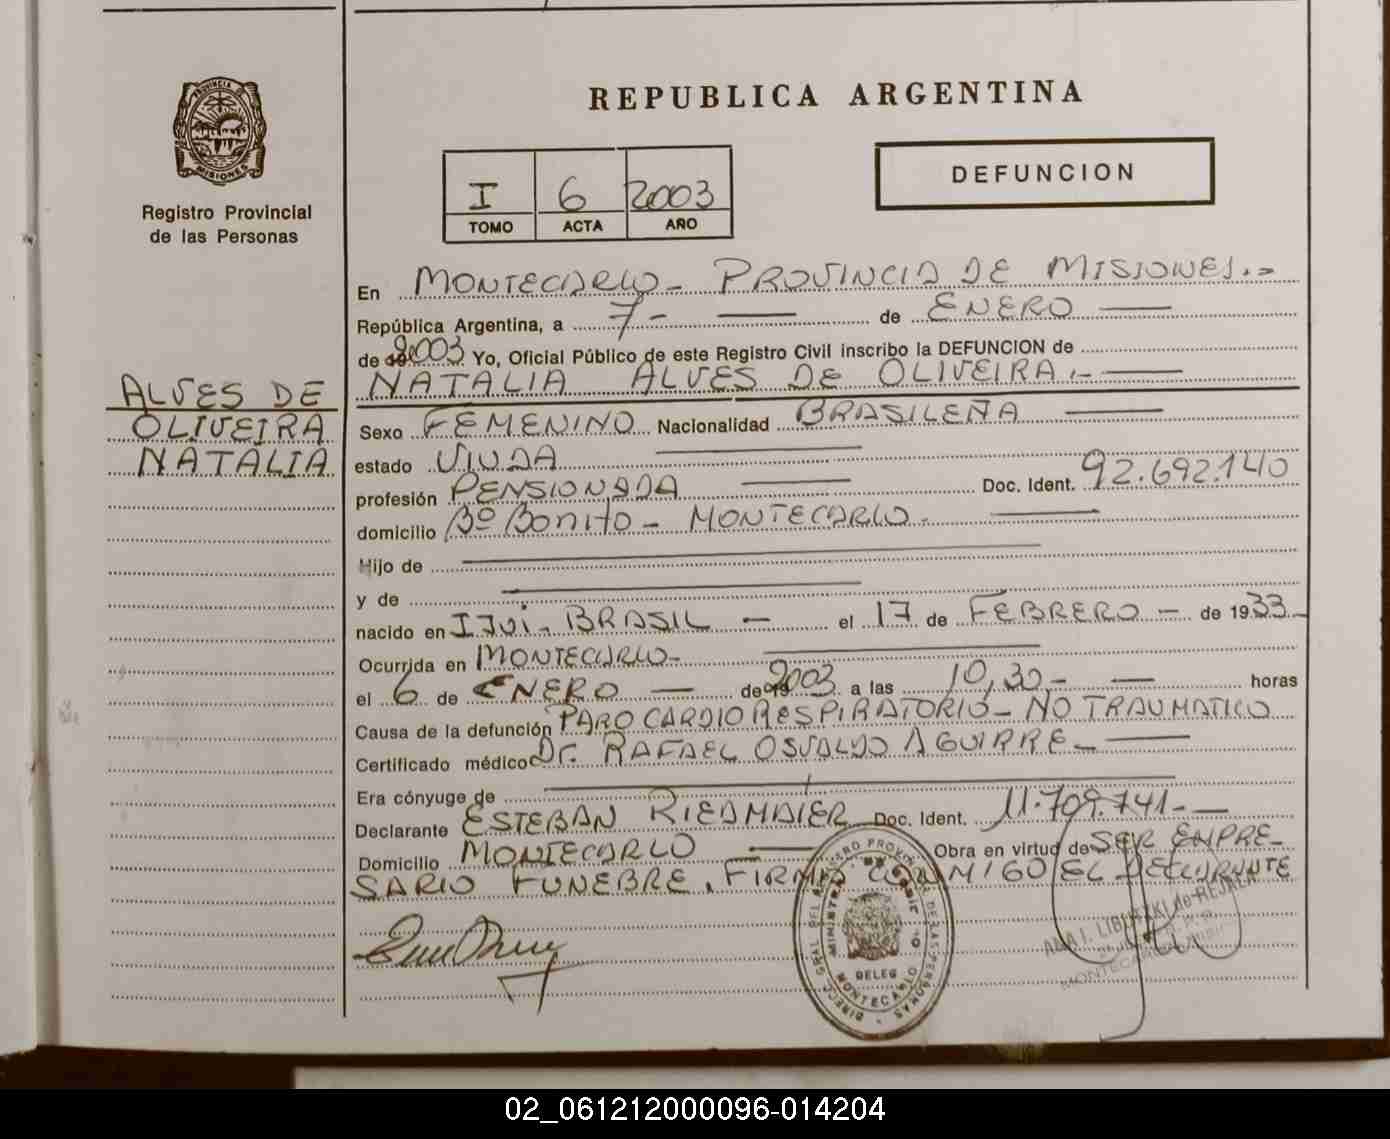 PROVINCIA DE
MISIONES
Registro Provincial
de las Personas
ALVES DE
OLIVEIRA
NATALIA
REPUBLICA ARGENTINA
I 6 2003
TOMO ACTA AÑO
DEFUNCION
En MONTECARLO - PROVINCIA DE MISIONES.-
República Argentina, a 7- — de ENERO —
de 2003 Yo, Oficial Público de este Registro Civil inscribo la DEFUNCION de
NATALIA ALVES DE OLIVEIRA.- —
Sexo FEMENINO Nacionalidad BRASILEÑA —
estado VIUDA —
profesión PENSIONADA — Doc. Ident. 92.692.140
domicilio Bº Bonito - MONTECARLO. —
Hijo de —
y de —
nacido en IJUI - BRASIL — el 17 de FEBRERO - de 1933-
Ocurrida en MONTECARLO- —
el 6 de ENERO — de 2003 a las 10,30- — horas
Causa de la defunción PARO CARDIO RESPIRATORIO - NO TRAUMATICO
Certificado médico Dr. RAFAEL OSVALDO AGUIRRE- —
Era cónyuge de —
Declarante ESTEBAN RIEDMAIER Doc. Ident. 11.709.741- —
Domicilio MONTECARLO — Obra en virtud de SER EMPRE-
SARIO FUNEBRE. FIRMA CONMIGO EL DECLARANTE
DELEG
MONTECARLO
02_061212000096-014204